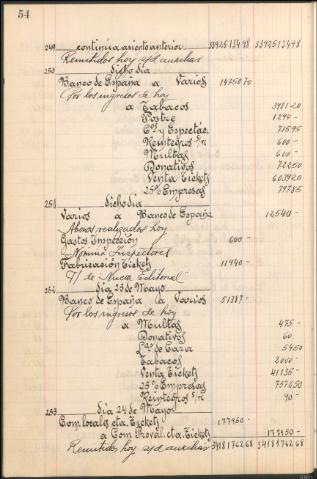 54
249 continúa asiento anterior 33925124 98 33925124 98
Remitidos hoy s/d auxiliar
250 dicho día
Banco de España a Varios
Por los ingresos de hoy
a Tabacos 3981 20
Postre 1294 -
Cés y Espectác. 735 95
Reintegros s/n 600 -
Multas 600 -
Donativos 722 50
Venta Tickets 6039 20
25% Empresas 797 85
251 dicho día
Varios a Banco de España 12540 -
Abonos realizados hoy
Gastos Inspección 600 -
Nómina Inspectores
Fabricación Tickets 11940 -
S/ de Nueva Editorial
252 día 23 de Mayo
Banco de España a Varios
Por los ingresos de hoy
a Multas 475 -
Donativos 60
de Caza 54 50
Tabacos 2000 -
Venta Tickets 41135 -
25% Empresas
Reintegros s/n 90 -
253 día 24 de Mayo
Com. locales cta. Tickets 177950 -
a Com. Proval. cta. Tickets 177950 -
Remitidos hoy s/d auxiliar 34181762 68 34181762 68